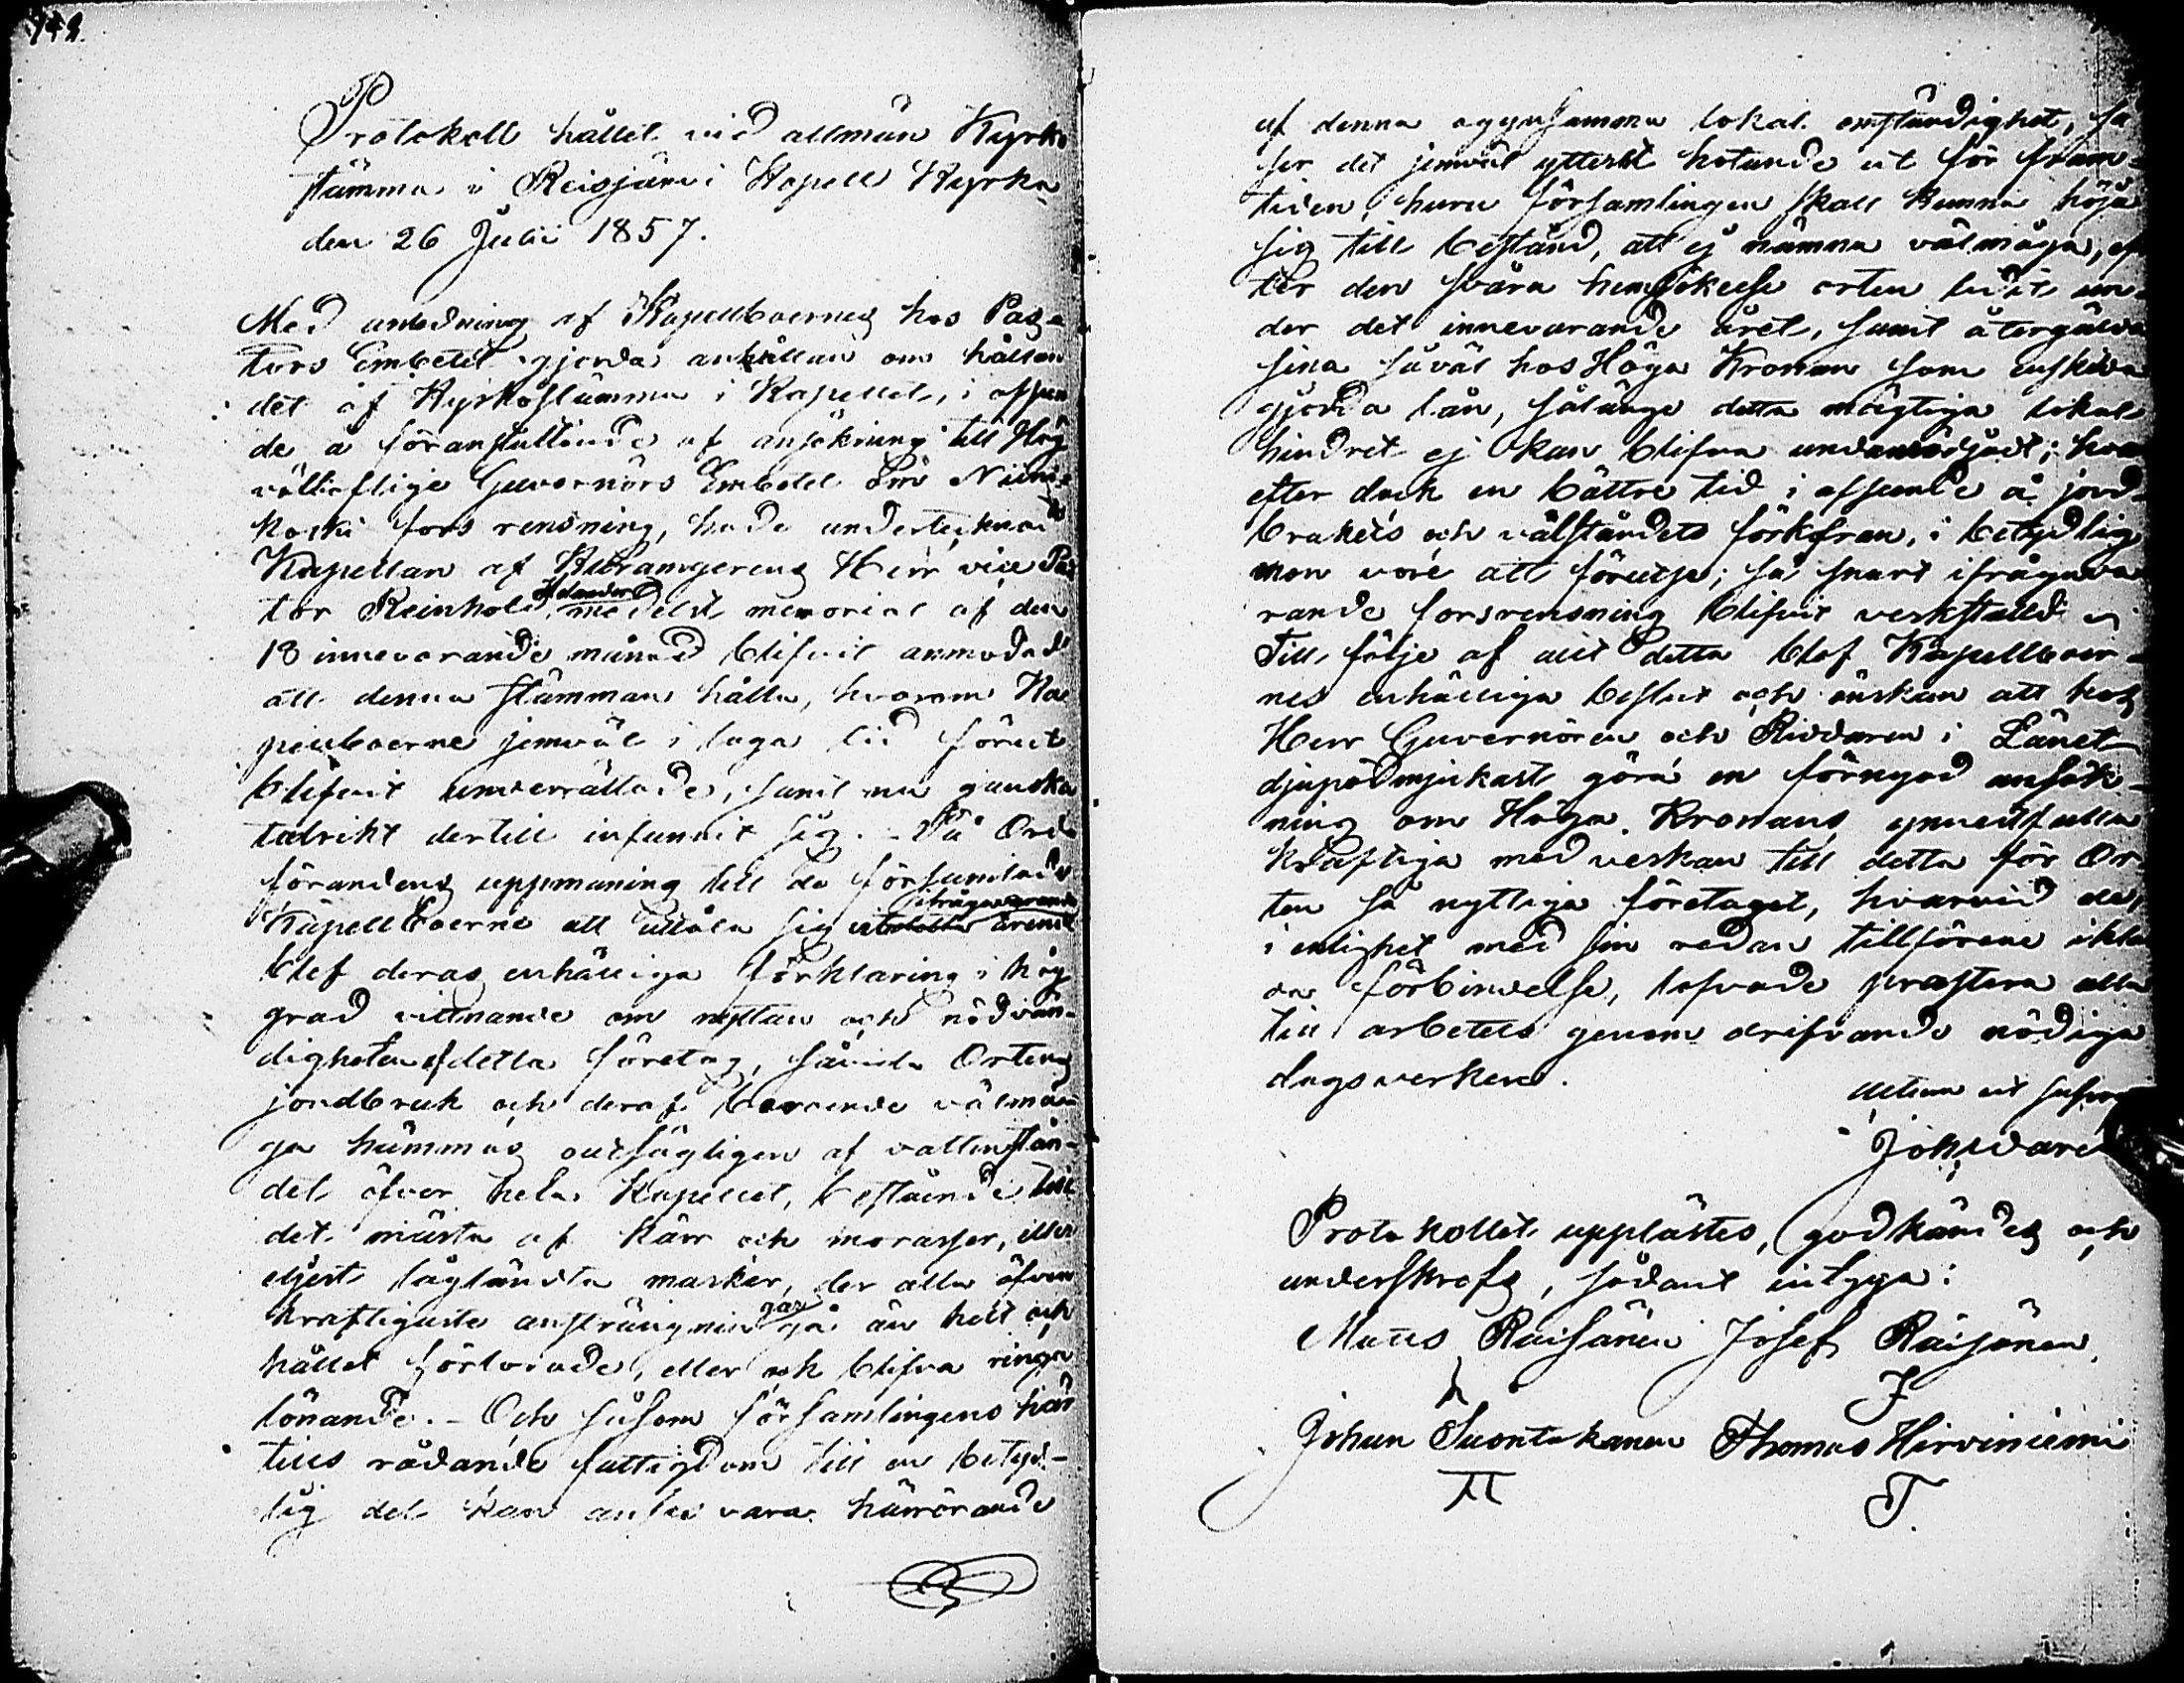 142.
Protokoll hållit vid allmän Kyrko
stämma i Reisjärvi Kapell Kyrka
den 26 Julii 1857.
Med anledning af Kapellboernes hos Pas-
tors Embetet gjorda anhållan om hållan
det af Kyrkostämma i Kapellet, i afseen
de å föranstaltande af ansökning till Hög
vällofliga Guvernörs Embetet om Niemi
koski fors rensning, hade undertecknad
Kapellan af Herr vice Pas
tor Reinhold Helander medelst memorial af den
13 innevarande månad blifvit anmodad
att denna stämman hålla, hvarom Ka
pellboerne jemväl i laga tid förut
blifvit underrättade, samt nu ganska
talrikt dertill infunnit sig. - På Ord
förandens uppmaning till de församlade
Kapellboerne att utlåta sig ifrågavarande ärende
blef deras enhälliga förklaring i hög
grad vittnande om nyttan och nödvän-
digheten af detta företag, såvida Ortens
jordbruk och deraf beroende välmå-
ga hämmas outsägligen af vattenstån-
det öfver hela Kapellet, bestående till
det mästa af kärr och morasser, eller
eljest lågländta marker, der alla äfven
kraftigaste ansträngningar gå än helt och
hållet förlorade, eller ock blifva ringa
lönande. - Och såsom församlingens här
tills rådande fattigdom till en betyd-
lig del kan anses vara härrörande
af denna ogynsamma lokal omständighet, så
ser det jemväl ytterst hotande ut för fram-
tiden, huru församlingen skall kunna höja
sig till bestånd, att ej nämna välmåga, ef
ter den svåra hemsökelse orten lidit un-
der det innevarande året, samt återgälda
sina såväl hos Höga Kronan som enskilda
gjorda lån, sålänge detta mägtiga lokal
hindret ej kan blifva undanröjdt; hvar
efter dock en bättre tid i afseende å jord-
brukets och välståndets förkofran, i betydlig
mon vore att förutse; så snart ifrågava
rande forsrensning blifvit verkstäld
Till följe af allt detta blef Kapellboer-
nes enhälliga beslut och önskan att hos
Herr Guvernören och Riddaren i Länet
djupödmjukast göra en förnyad ansök-
ning om Höga Kronans ynnestfulla
kraftiga medverkan till detta för Or-
ten så nyttiga företaget, hvarvid de,
i enlighet med sin redan tillförene
förbindelse, lofvade prestera alla
till arbetets genom drifvande nödiga
dagsverken.
Actum ut supra
Joh:
Protokollet upplästes, godkändes och
underskrefs, sådant intyga:
Matts Raisänen Josef Räisänen
J
Johan Suontakanen Thomas Hirviniemi
T.